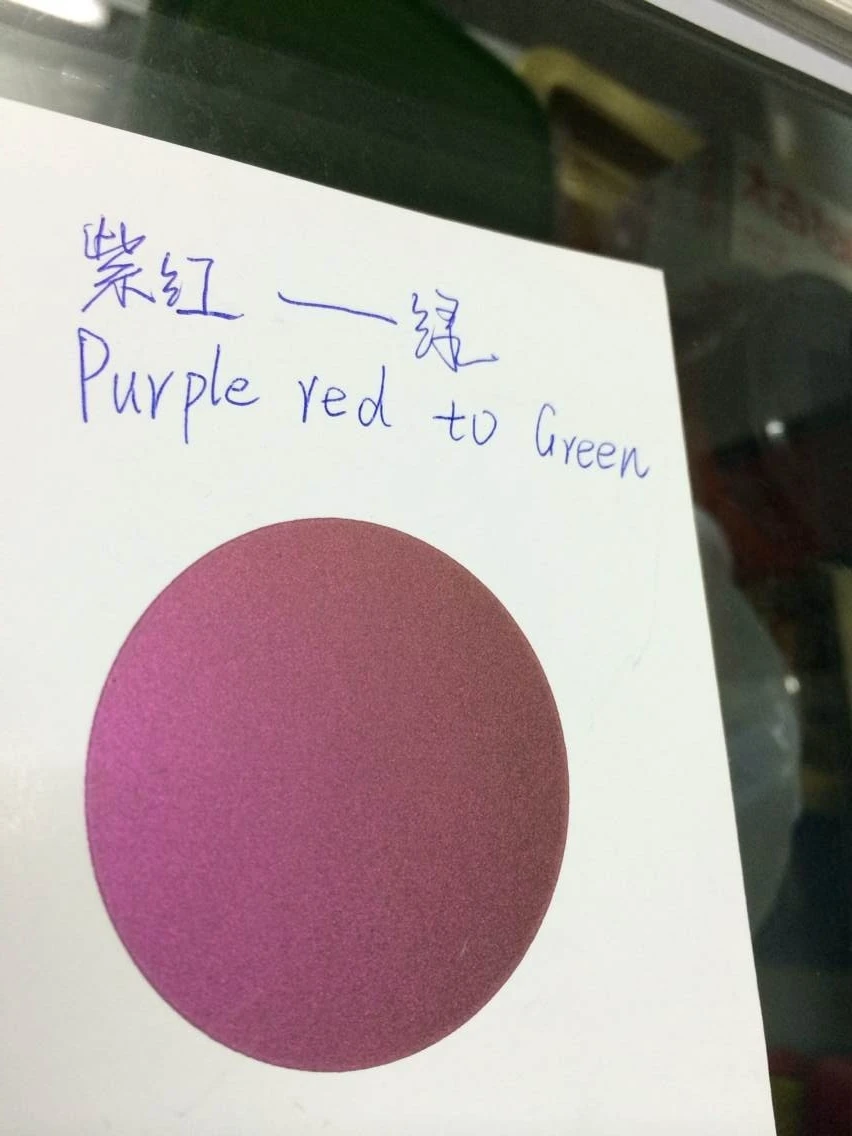 紫红 — 绿
Purple red to Green